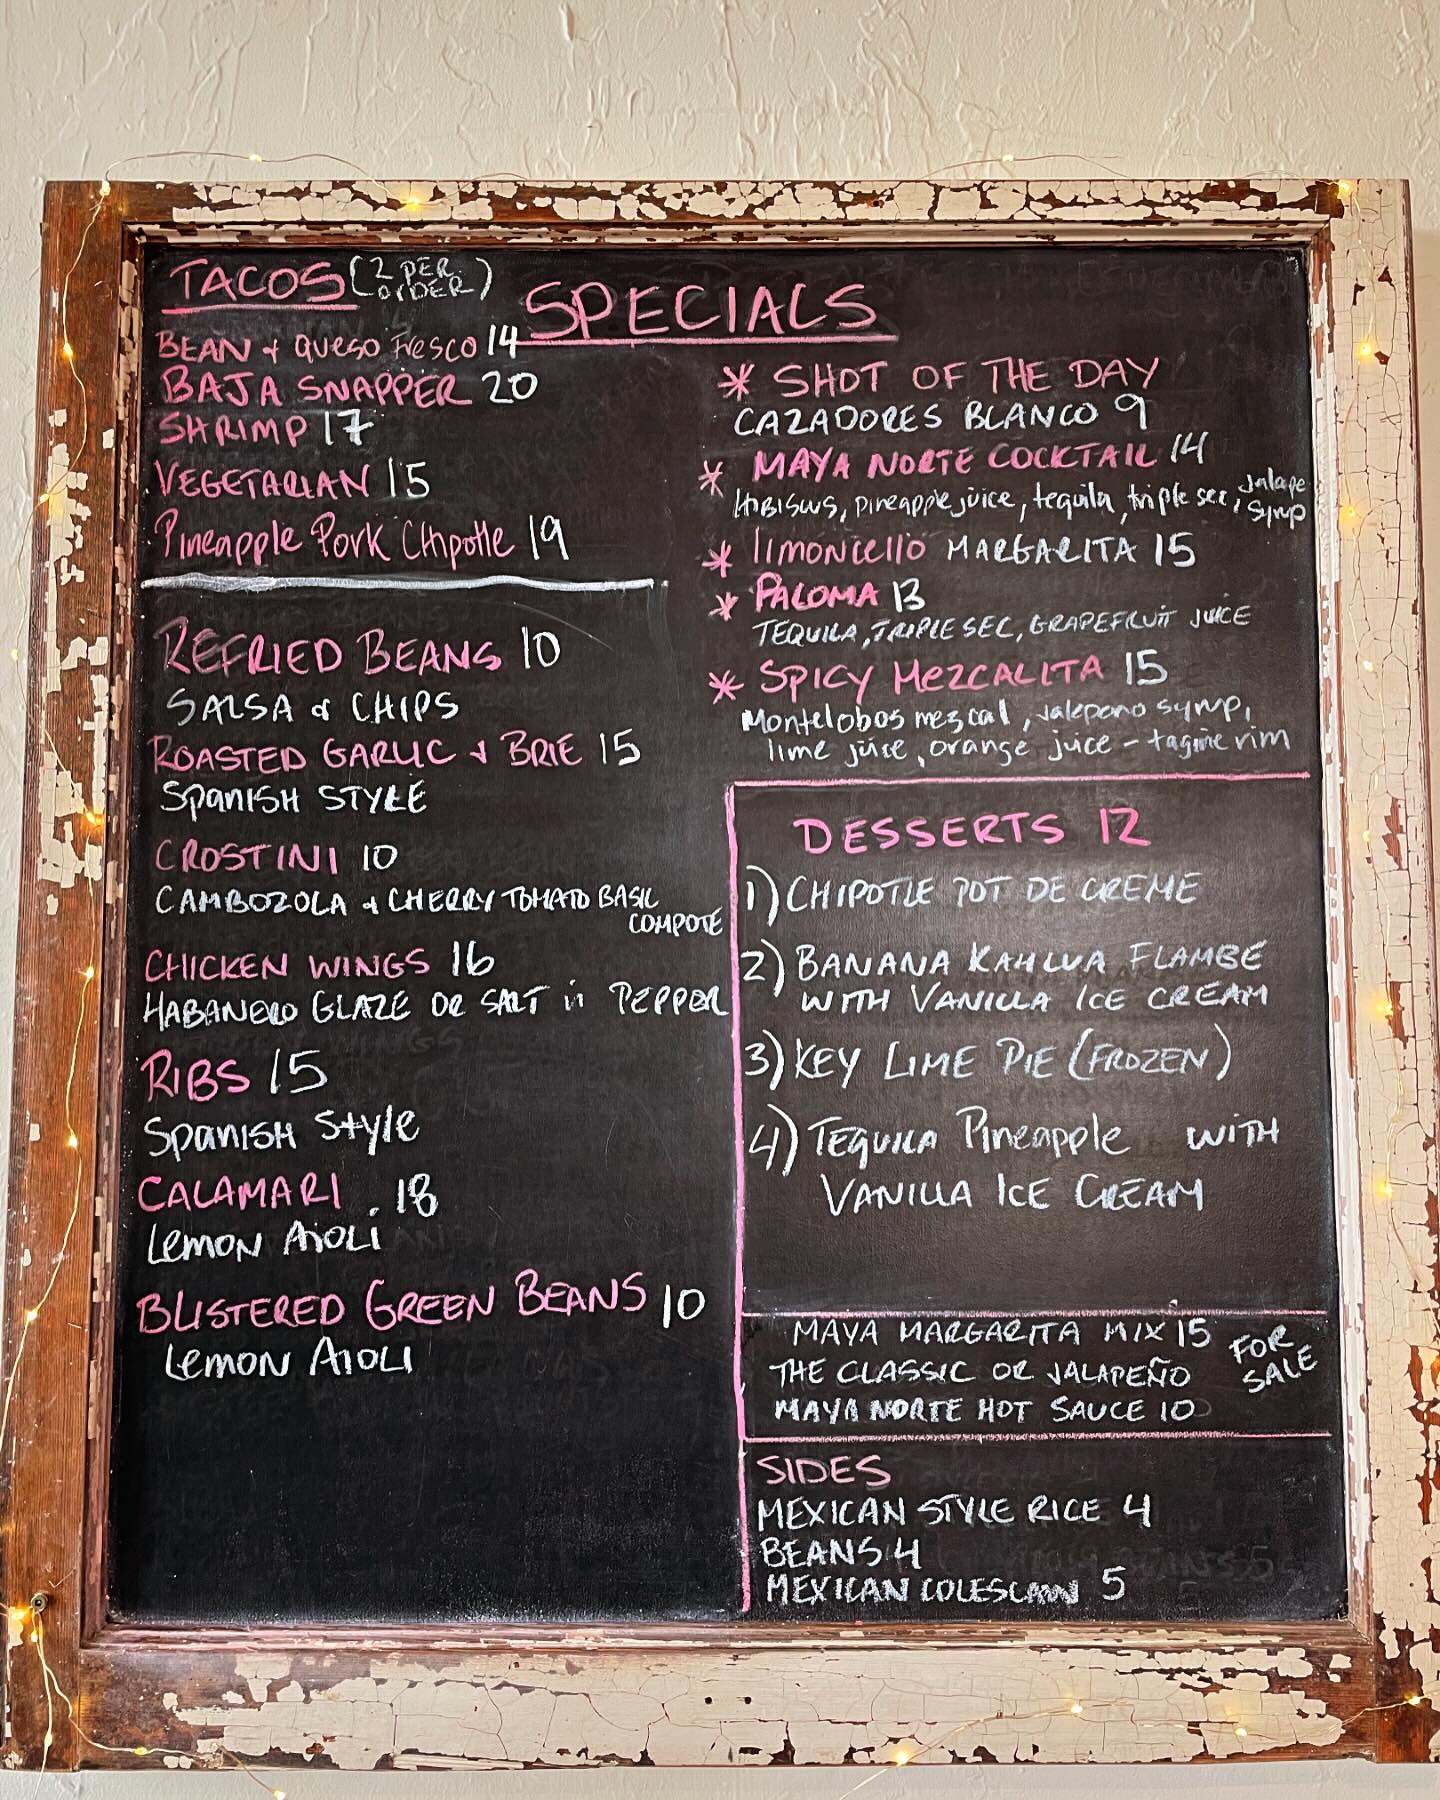 TACOS (2 PER ORDER)
SPECIALS
BEAN + QUESO FRESCO 14
BAJA SNAPPER 20
SHRIMP 17
VEGETARIAN 15
Pineapple Pork Chipotle 19
REFRIED BEANS 10
SALSA & CHIPS
ROASTED GARLIC + BRIE 15
SPANISH STYLE
CROSTINI 10
CAMBOZOLA + CHERRY TOMATO BASIL
COMPOTE
CHICKEN WINGS 16
HABANERO GLAZE OR SALT n PEPPER
RIBS 15
Spanish Style
CALAMARI 18
Lemon Aioli
BLISTERED GREEN BEANS 10
Lemon AIOLI
* SHOT OF THE DAY
CAZADORES BLANCO 9
* MAYA NORTE COCKTAIL 14
HIBISCUS, pineapple juice, tequila, triple sec, Jalape
Syrup
* limoncello MARGARITA 15
* PALOMA 13
TEQUILA, TRIPLE SEC, GRAPEFRUIT JUICE
* SPICY MEZCALITA 15
Montelobos mezcal, Jalepono syrup,
lime juice, orange juice - tagine rim
DESSERTS 12
1) CHIPOTLE POT DE CREME
2) BANANA KAHLUA FLAMBE
WITH VANILLA ICE CREAM
3) KEY LIME PIE (FROZEN)
4) TEQUILA Pineapple WITH
VANILLA ICE CREAM
MAYA MARGARITA MIX 15
THE CLASSIC OR JALAPEÑO
MAYA NORTE HOT SAUCE 10
FOR
SALE
SIDES
MEXICAN STYLE RICE 4
BEANS 4
MEXICAN COLESLAW 5